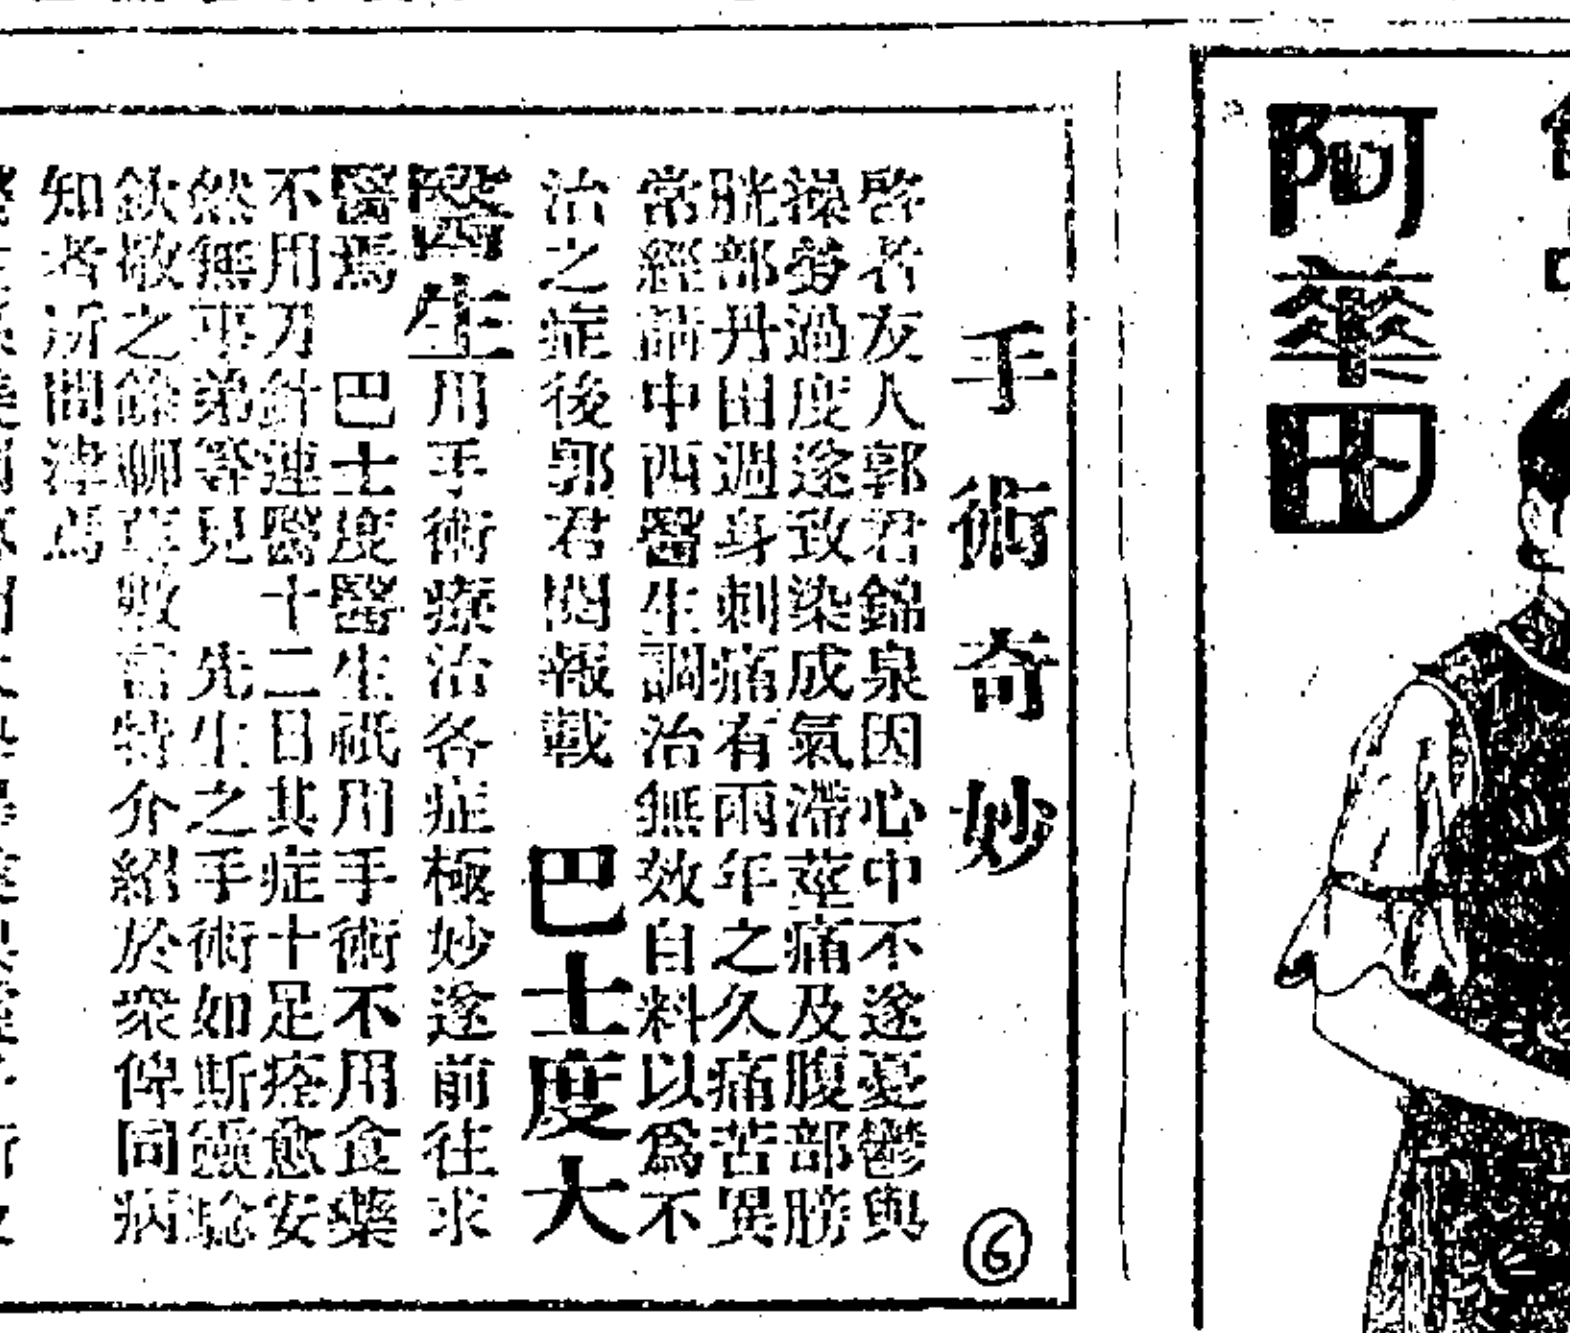 阿華田
手術奇妙
啓者友人郭君錦泉因心中不遂憂鬱與
操勞過度遂致染成氣滯莖痛及腹部膀
胱部丹田週身刺痛有兩年之久痛苦異
常經請中西醫生調治無效自料以爲不
治之症後郭君閱報載 巴士度大
醫生用手術療治各症極妙遂前往求
醫焉 巴士度醫生祇用手術不用食藥
不用刀針連醫十二日其症十足痊愈安
然無事弟等見 先生之手術如斯靈驗
欽敬之餘聊草數言特介紹於衆俾同病
知者所問津焉
⑥